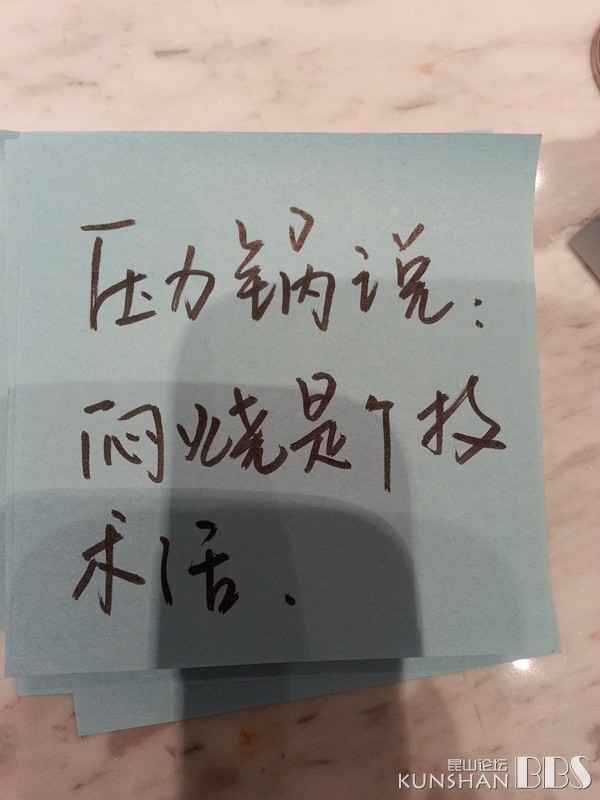 压力锅说：
闷烧是个技
术活.
昆山论坛
KUNSHAN BBS